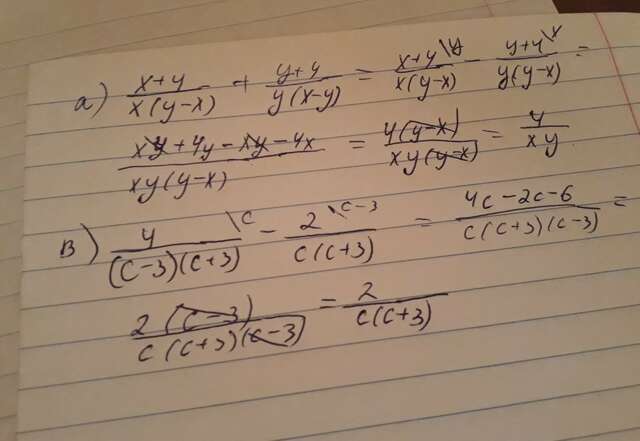 а) x+4/x(y-x) + y+4/y(x-y) = x+4\y/x(y-x) - y+4\x/y(y-x) =
xy+4y-xy-4x/xy(y-x) = 4(y-x)/xy(y-x) = 4/xy
в) 4\c/(c-3)(c+3) - 2\c-3/c(c+3) = 4c-2c-6/c(c+3)(c-3) =
2(c-3)/c(c+3)(c-3) = 2/c(c+3)